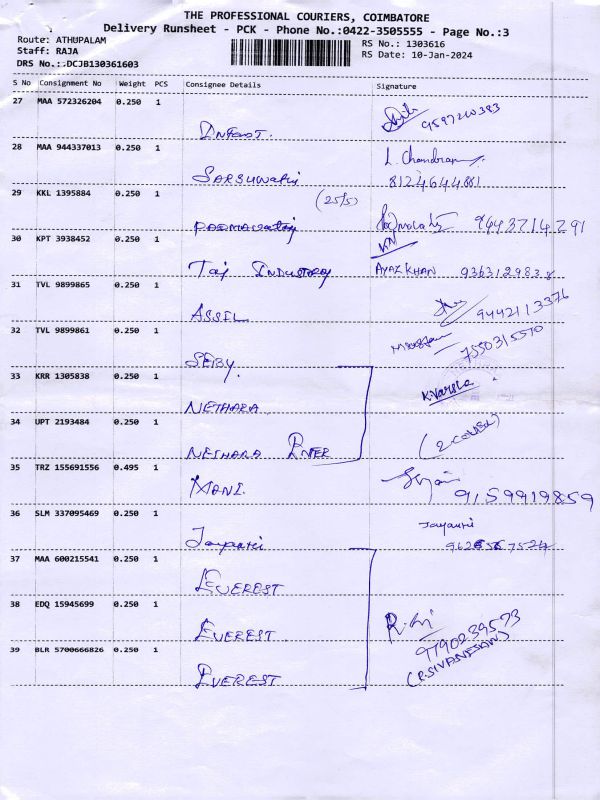 THE PROFESSIONAL COURIERS, COIMBATORE
Delivery Runsheet - PCK - Phone No.:0422-3505555 - Page No.:3
Route: ATHUPALAM RS No.: 1303616
Staff: RAJA RS Date: 10-Jan-2024
DRS No.:.DCJB130361603
S No Consignment No Weight PCS Consignee Details Signature
27 MAA 572326204 0.250 1
9597210383
28 MAA 944337013 0.250 1 L. Chandran
SARSUWATHI 8124644881
29 KKL 1395884 0.250 1 (25/5)
PADMAVATHY 9643714291
30 KPT 3938452 0.250 1
Taj INDUSTRY AYAZ KHAN 9363129838
31 TVL 9899865 0.250 1
ASSIL 9442113376
32 TVL 9899861 0.250 1
SEBY. 7550315570
33 KRR 1305838 0.250 1
NETHARA K.Varsha
34 UPT 2193484 0.250 1 (2-COUSI)
NETHARA
35 TRZ 155691556 0.495 1
MANI. 9159919859
36 SLM 337095469 0.250 1 Jayanthi
Jayanthi
37 MAA 600215541 0.250 1
EVEREST
38 EDQ 15945699 0.250 1
EVEREST 9790239573
39 BLR 5700666826 0.250 1 (R.SIVANESAN)
EVEREST